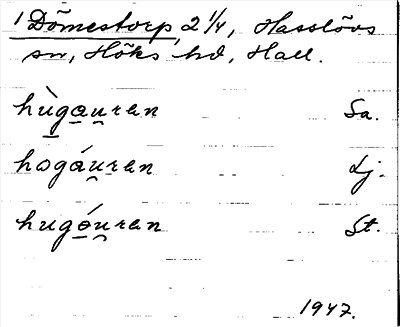 1 Dömestorp, 2 1/4, Hasslövs
sn, Höks hd, Hall.
hùgau̯ran Sa.
hogáu̯ran Lj.
hugóu̯ran St.
1947.